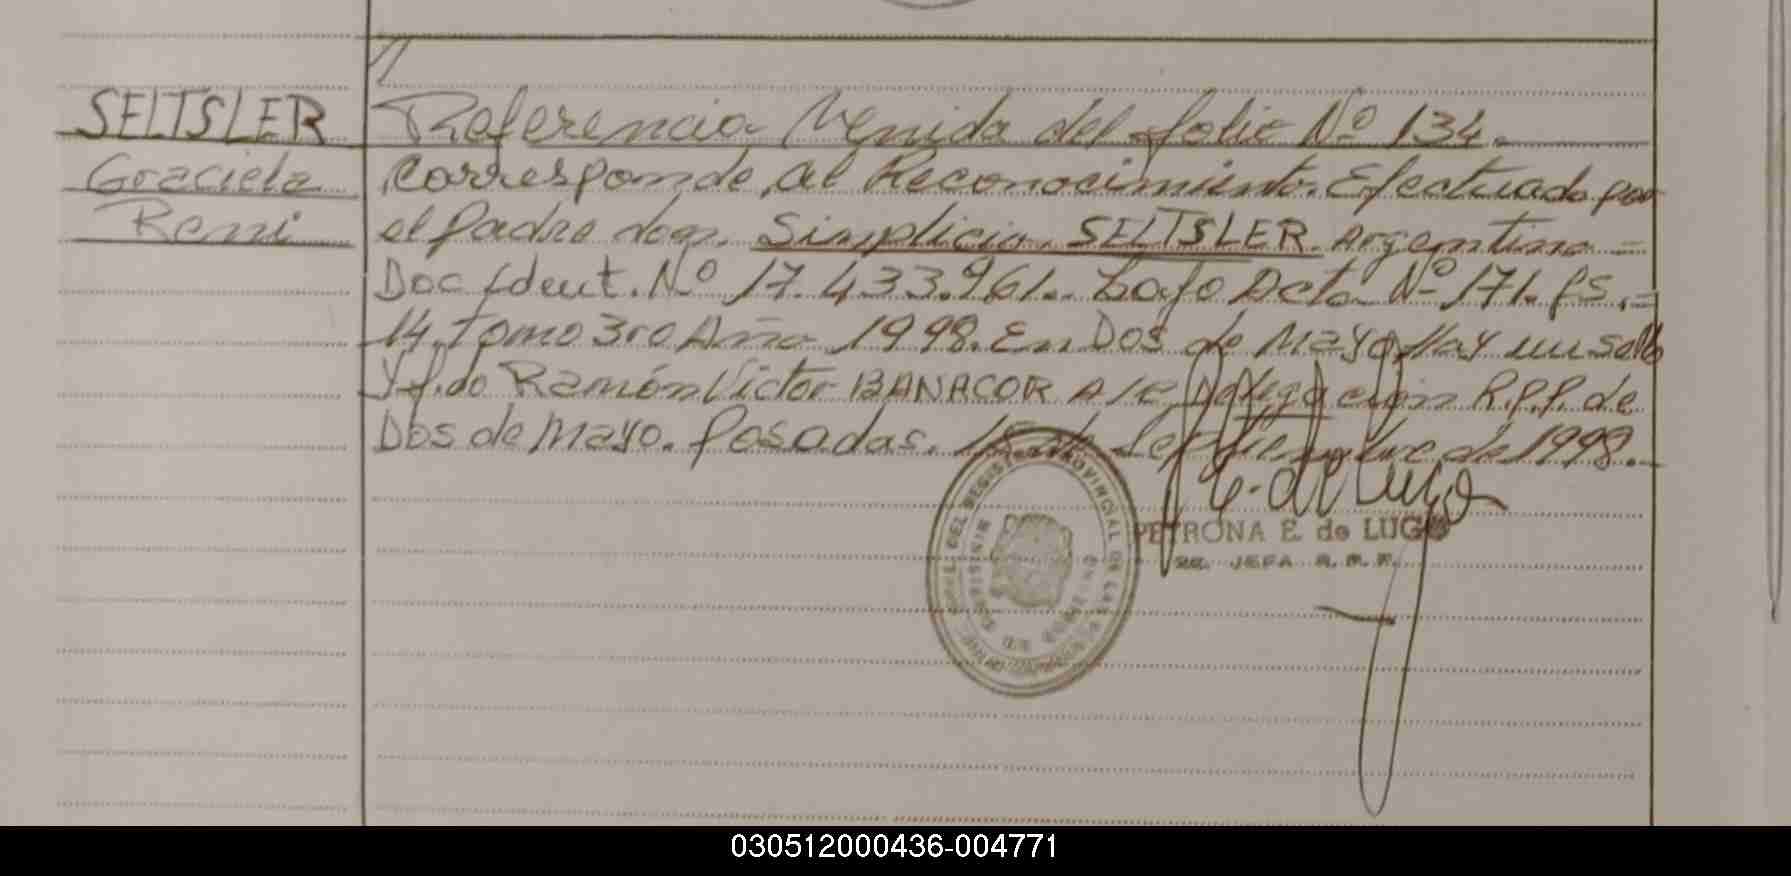 SELTSLER
Graciela
Remi
Referencia Venida del folio Nº 134.
Corresponde, al Reconocimiento. Efectuado por
el Padre don. Simplicio SELTSLER Argentino =
Doc Ident. Nº 17.433.961.. bajo Acta Nº 171. fs. =
14. Tomo 3ro Año 1998. En Dos de Mayo Hay un sello
y f.do Ramón Victor BANACOR A/c Delegación R.P.P. de
Dos de Mayo. Posadas. 15 de Septiembre de 1998.-
E. de Lugo
PETRONA E. de LUGO
JEFA R. P. P.
DEL REGISTRO PROVINCIAL DE LAS PERSONAS
MINISTERIO
030512000436-004771